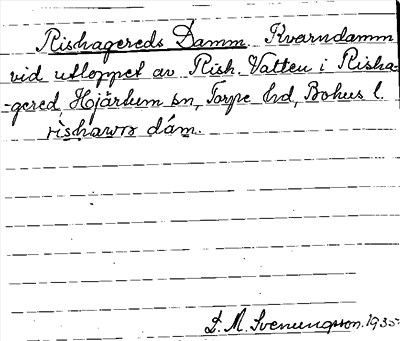 Rishagereds Damm. Kvarndamm
vid utloppet av Rish. Vatten i Risha-
-gered Hjärtum sn, Torpe hd, Bohus l.
dám.
D. M. Svenungsson. 1935.